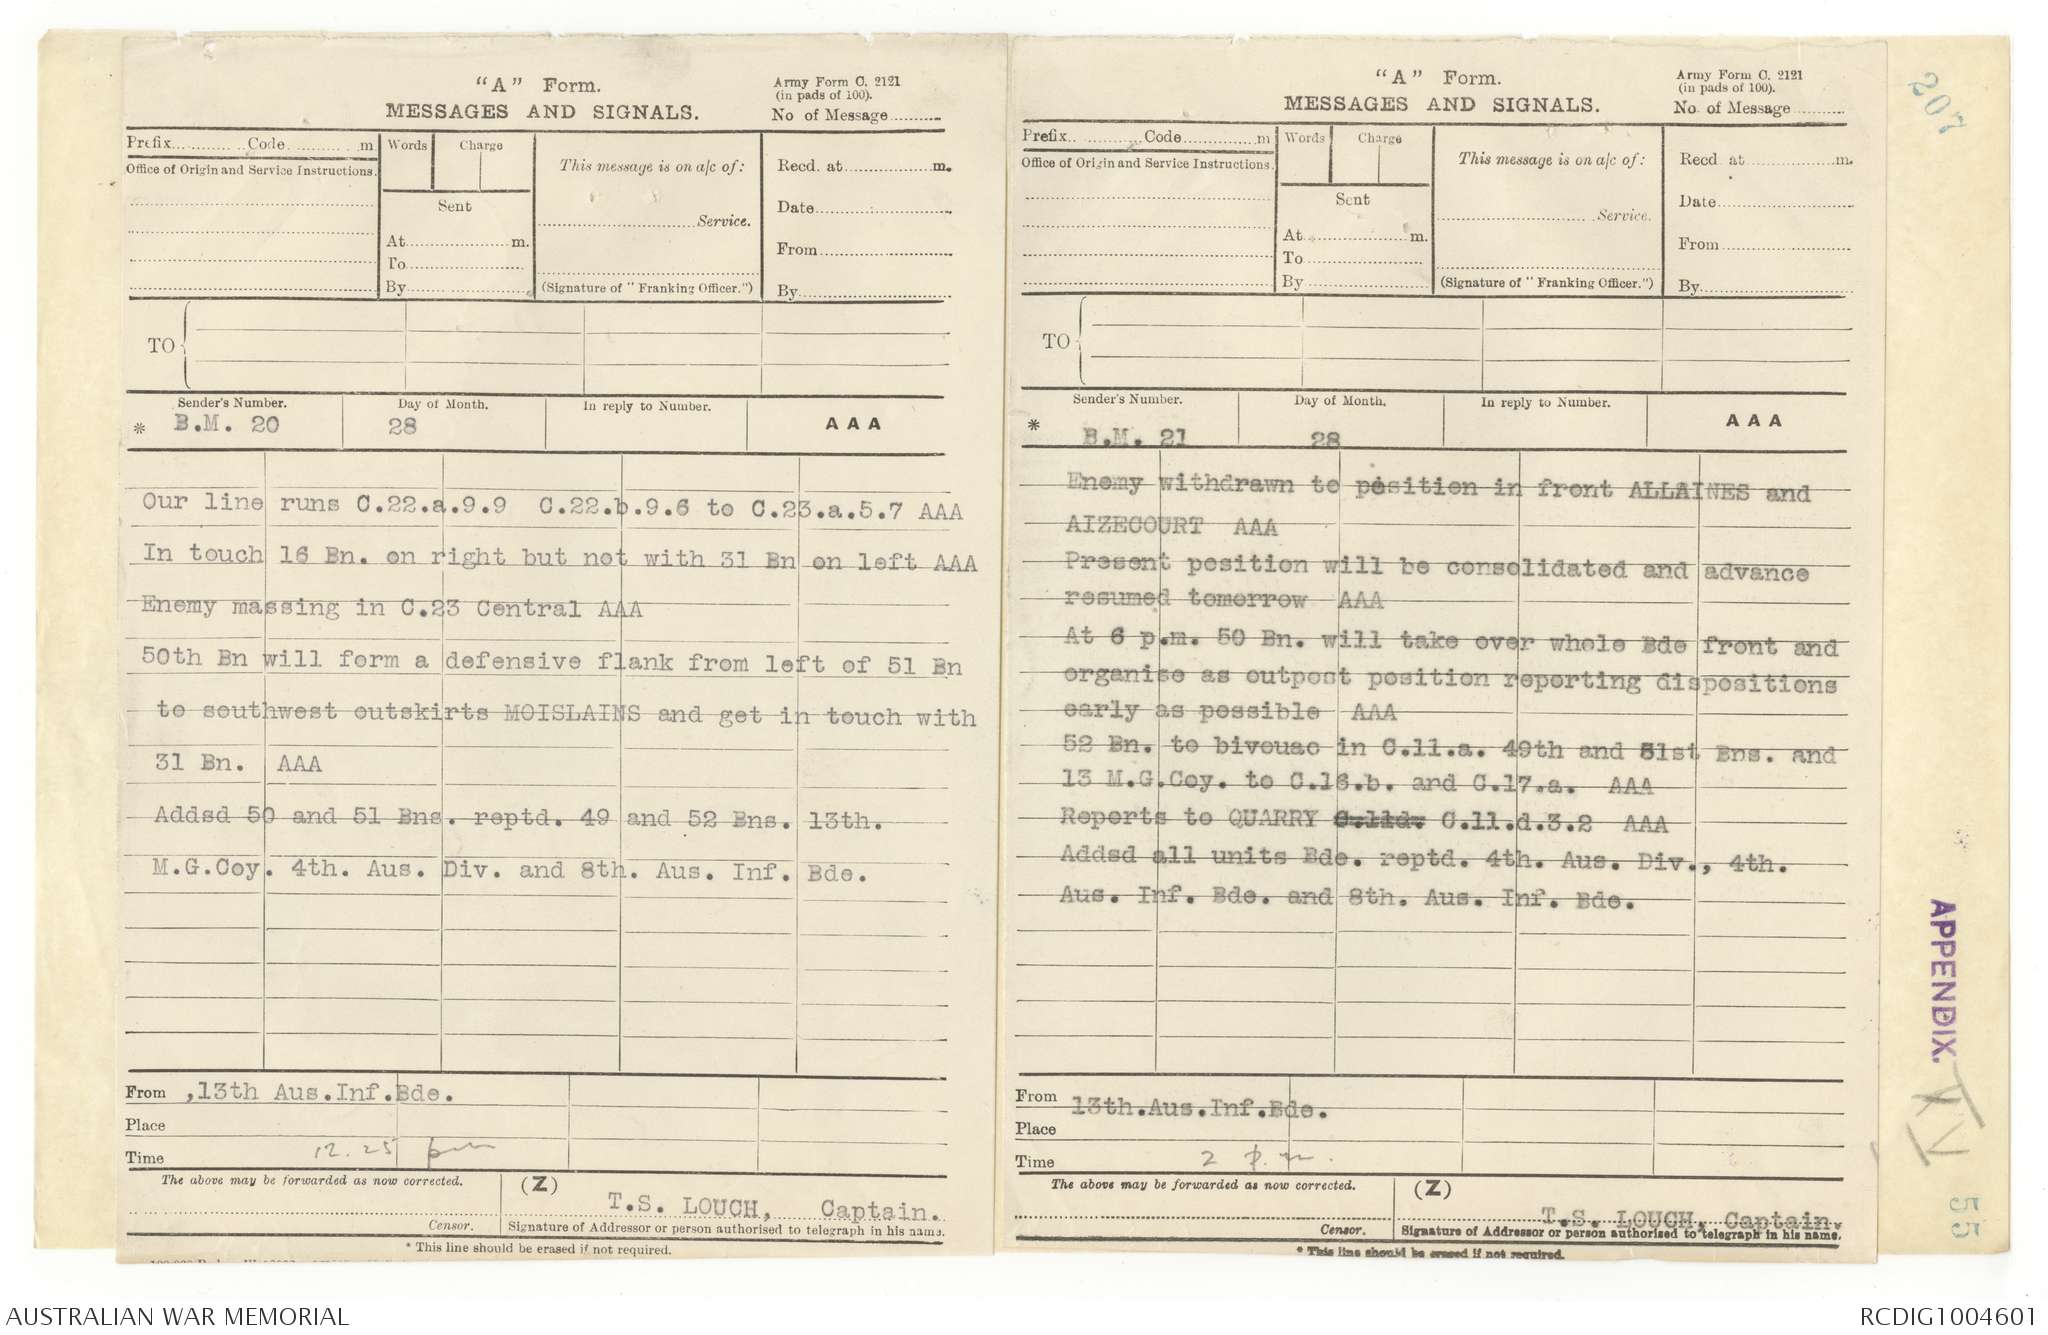 "A" Form.
MESSAGES AND SIGNALS.
Army Form C. 2121
(in pads of 100).
No of Message..........
Prefix............Code............m.
Words
Charge
This message is on a/c of:
Recd. at..............m.
Office of Origin and Service Instructions.
Sent
Date..............
Service.
At..............m.
From..............
To..............
By..............
(Signature of "Franking Officer.")
By..............
TO
Sender's Number.
Day of Month.
In reply to Number.
AAA
* B.M. 20
28
Our line runs C.22.a.9.9 C.22.b.9.6 to C.23.a.5.7 AAA
In touch 16 Bn. on right but not with 31 Bn on left AAA
Enemy massing in C.23 Central AAA
50th Bn will form a defensive flank from left of 51 Bn
to southwest outskirts MOISLAINS and get in touch with
31 Bn. AAA
Addsd 50 and 51 Bns. reptd. 49 and 52 Bns. 13th.
M.G.Coy. 4th. Aus. Div. and 8th. Aus. Inf. Bde.
From ,13th Aus.Inf.Bde.
Place
Time 12.25 pm
The above may be forwarded as now corrected.
(Z)
T.S. LOUCH, Captain.
Censor.
Signature of Addressor or person authorised to telegraph in his name.
* This line should be erased if not required.
"A" Form.
MESSAGES AND SIGNALS.
Army Form C. 2121
(in pads of 100).
No. of Message..........
Prefix............Code............m
Words
Charge
This message is on a/c of:
Recd at..............m.
Office of Origin and Service Instructions.
Sent
Date..............
Service.
At..............m.
From..............
To..............
By..............
(Signature of "Franking Officer.")
By..............
TO
Sender's Number.
Day of Month.
In reply to Number.
AAA
* B.M. 21
28
Enemy withdrawn to position in front ALLAINES and
AIZECOURT AAA
Present position will be consolidated and advance
resumed tomorrow AAA
At 6 p.m. 50 Bn. will take over whole Bde front and
organise as outpost position reporting dispositions
early as possible AAA
52 Bn. to bivouac in C.11.a. 49th and 51st Bns. and
13 M.G.Coy. to C.16.b. and C.17.a. AAA
Reports to QUARRY C.11d. C.11.d.3.2 AAA
Addsd all units Bde. reptd. 4th. Aus. Div., 4th.
Aus. Inf. Bde. and 8th. Aus. Inf. Bde.
From 13th.Aus.Inf.Bde.
Place
Time 2 p.m.
The above may be forwarded as now corrected.
(Z)
T.S. LOUCH, Captain.
Censor.
Signature of Addressor or person authorised to telegraph in his name.
* This line should be erased if not required.
207
APPENDIX.
XV
55
AUSTRALIAN WAR MEMORIAL
RCDIG1004601